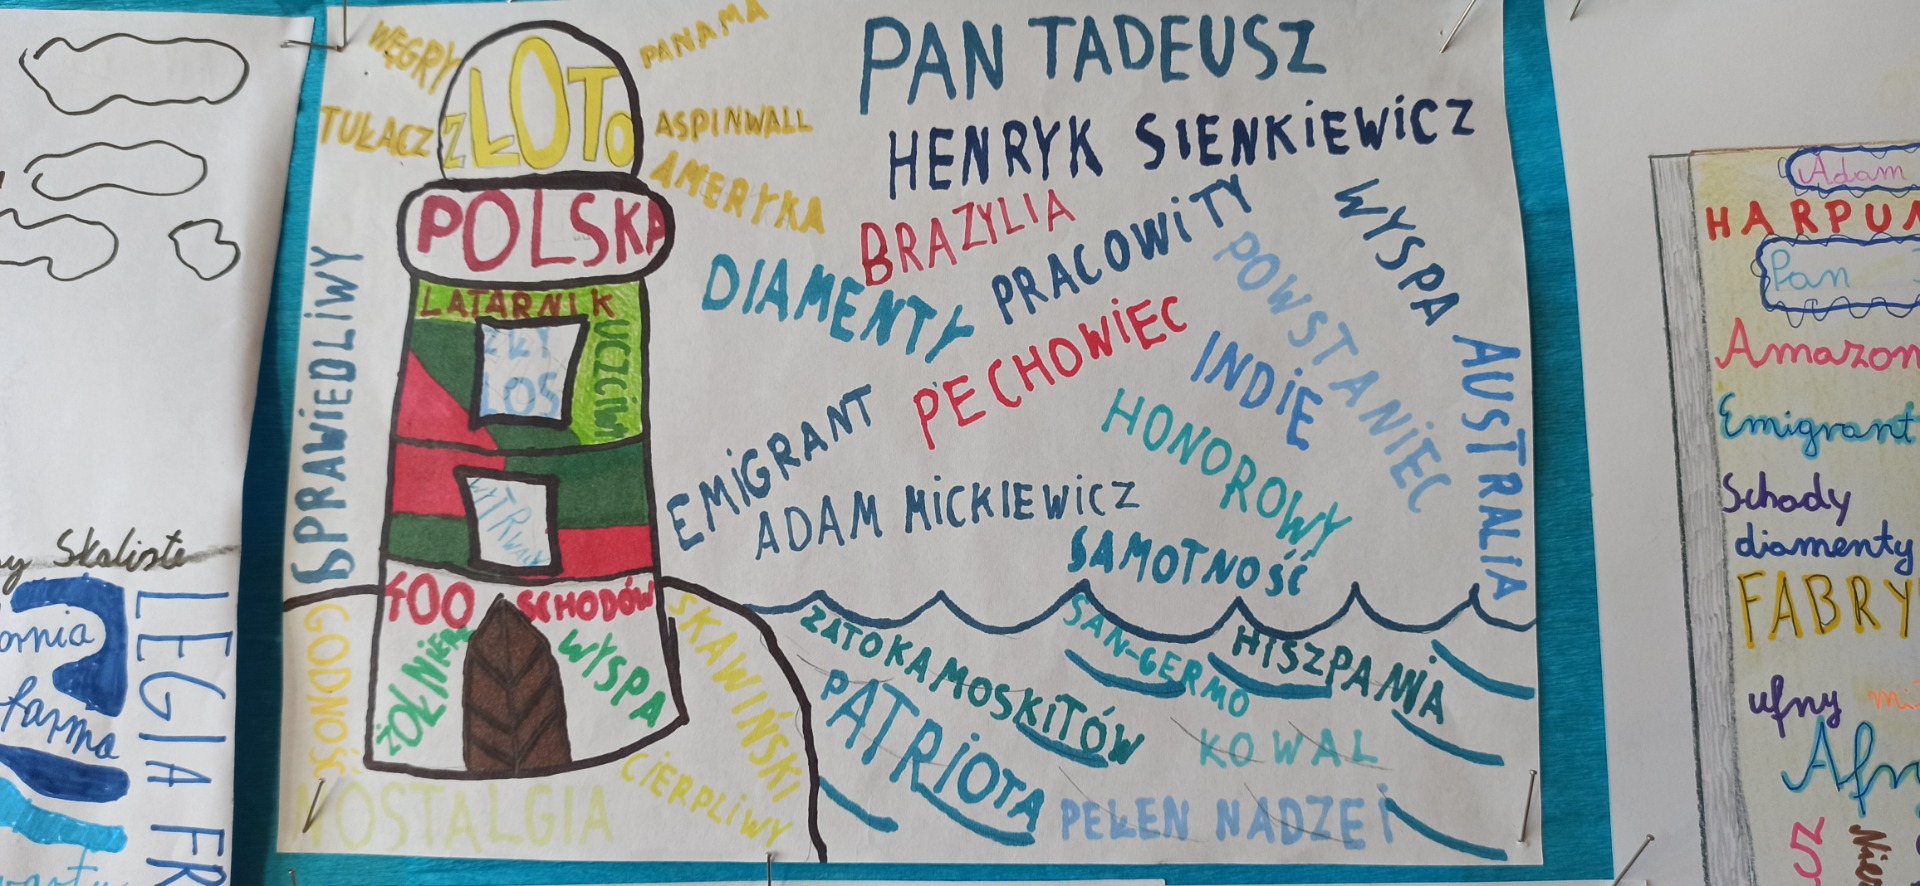 WĘGRY
PANAMA
TUŁACZ
ZŁOTO
ASPINWALL
AMERYKA
POLSKA
LATARNIK
UCZCIWY
ZŁY
LOS
WYTRWAŁY
400 SCHODÓW
ŻOŁNIERZ
WYSPA
SPRAWIEDLIWY
GODNOŚĆ
NOSTALGIA
CIERPLIWY
SKAWIŃSKI
PAN TADEUSZ
HENRYK SIENKIEWICZ
BRAZYLIA
PRACOWITY
WYSPA
DIAMENTY
POWSTANIEC
PECHOWIEC
INDIE
AUSTRALIA
EMIGRANT
HONOROWY
ADAM MICKIEWICZ
SAMOTNOŚĆ
ZATOKA MOSKITÓW
SAN-GERMO
HISZPANIA
PATRIOTA
KOWAL
PEŁEN NADZEI
Skaliste
farma
LEGIA FR
Adam
HARPUN
Pan
Amazon
Emigrant
Schody
diamenty
FABRY
ufny